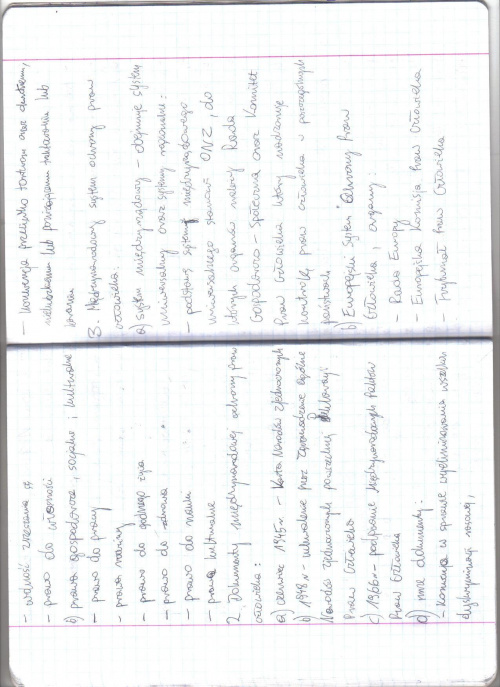 - wolność zrzeszania się
- prawo do wolności
b) prawa gospodarcze, socjalne i kulturalne
- prawo do pracy
- prawa rodziny
- prawo do godnego życia
- prawo do zdrowia
- prawo do nauki
- prawa kulturalne
2. Dokumenty międzynarodowej ochrony praw
człowieka:
a) czerwiec 1945r. - Karta Narodów Zjednoczonych
b) 1948 r - uchwalenie przez Zgromadzenie Ogólne
Narodów Zjednoczonych Powszechnej Deklaracji
Praw Człowieka
c) 1966r - podpisanie Międzynarodowych Paktów
Praw Człowieka
d) inne dokumenty:
- Konwencja w sprawie wyeliminowania wszelkich
dyskryminacji rasowej,
- konwencja przeciwko torturom oraz okrutnemu,
nieludzkiemu lub poniżającemu traktowaniu lub
karaniu
3. Międzynarodowy system ochrony praw
człowieka:
a) system międzynarodowy - obejmuje system
uniwersalny oraz systemy regionalne:
- podstawą systemu międzynarodowego
uniwersalnego stanowi ONZ, do
których organów należy Rada
Gospodarczo - Społeczna oraz Komitet
Praw Człowieka który nadzoruje
kontrolę praw człowieka w poszczególnych
państwach
b) Europejski System Ochrony Praw
Człowieka, organy:
- Rada Europy
- Europejska Komisja Praw Człowieka
- Trybunał Praw Człowieka